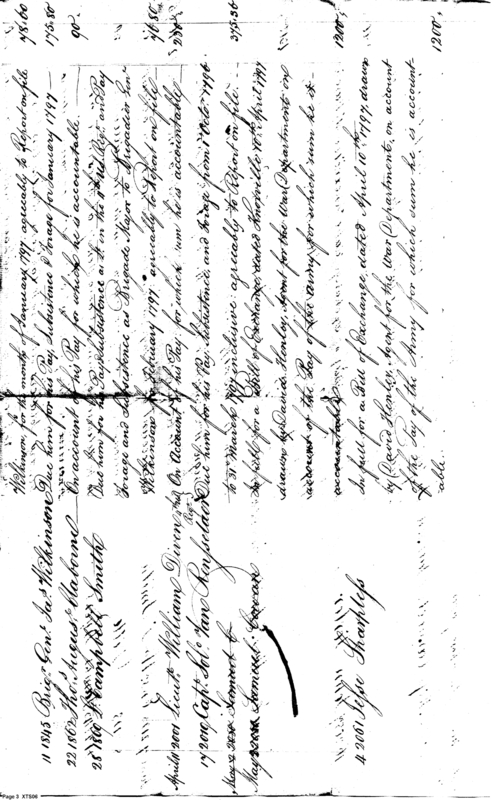 Wilkinson, for the months of January 1797 agreeably to Report on file 78.00
11 1845 Brigr. Genl. Jas. Wilkinson Due him for his Pay Subsistence & Forage for January 1797 175.80
22 Thos. August Claborne On account of his Pay for which he is accountable 90
25 Campbell Smith Due him for his Pay & Subsistence as Lt. in the Regt. and Pay
Forage and Subsistence as Brigade Major to Brigadier Genl.
Wilkinson for February 1797 agreeably to Report on file
April 11 2001 Lieut. William Diven On Account of his Pay for which sum he is accountable
17 2010 Capt. Sol. Van Renselaer Due him for his Pay, Subsistence and forage from 1 Octr. 1796
to 31st. March 1797 inclusive agreeably to Report on file 373.36
May 2 Samuel Cowan In full for a Bill of Exchange, dated Knoxville 10th April 1797
drawn by David Henley, Agent for the War Department on
account of the Pay of the Army for which sum he is
accountable 1200
4 2061 Jesse Sharpless In full for a Bill of Exchange, dated April 10th. 1797, drawn
by David Henley, Agent for the War Department, on account
of the Pay of the Army for which sum he is account-
able 1200
Page 3 XTS06